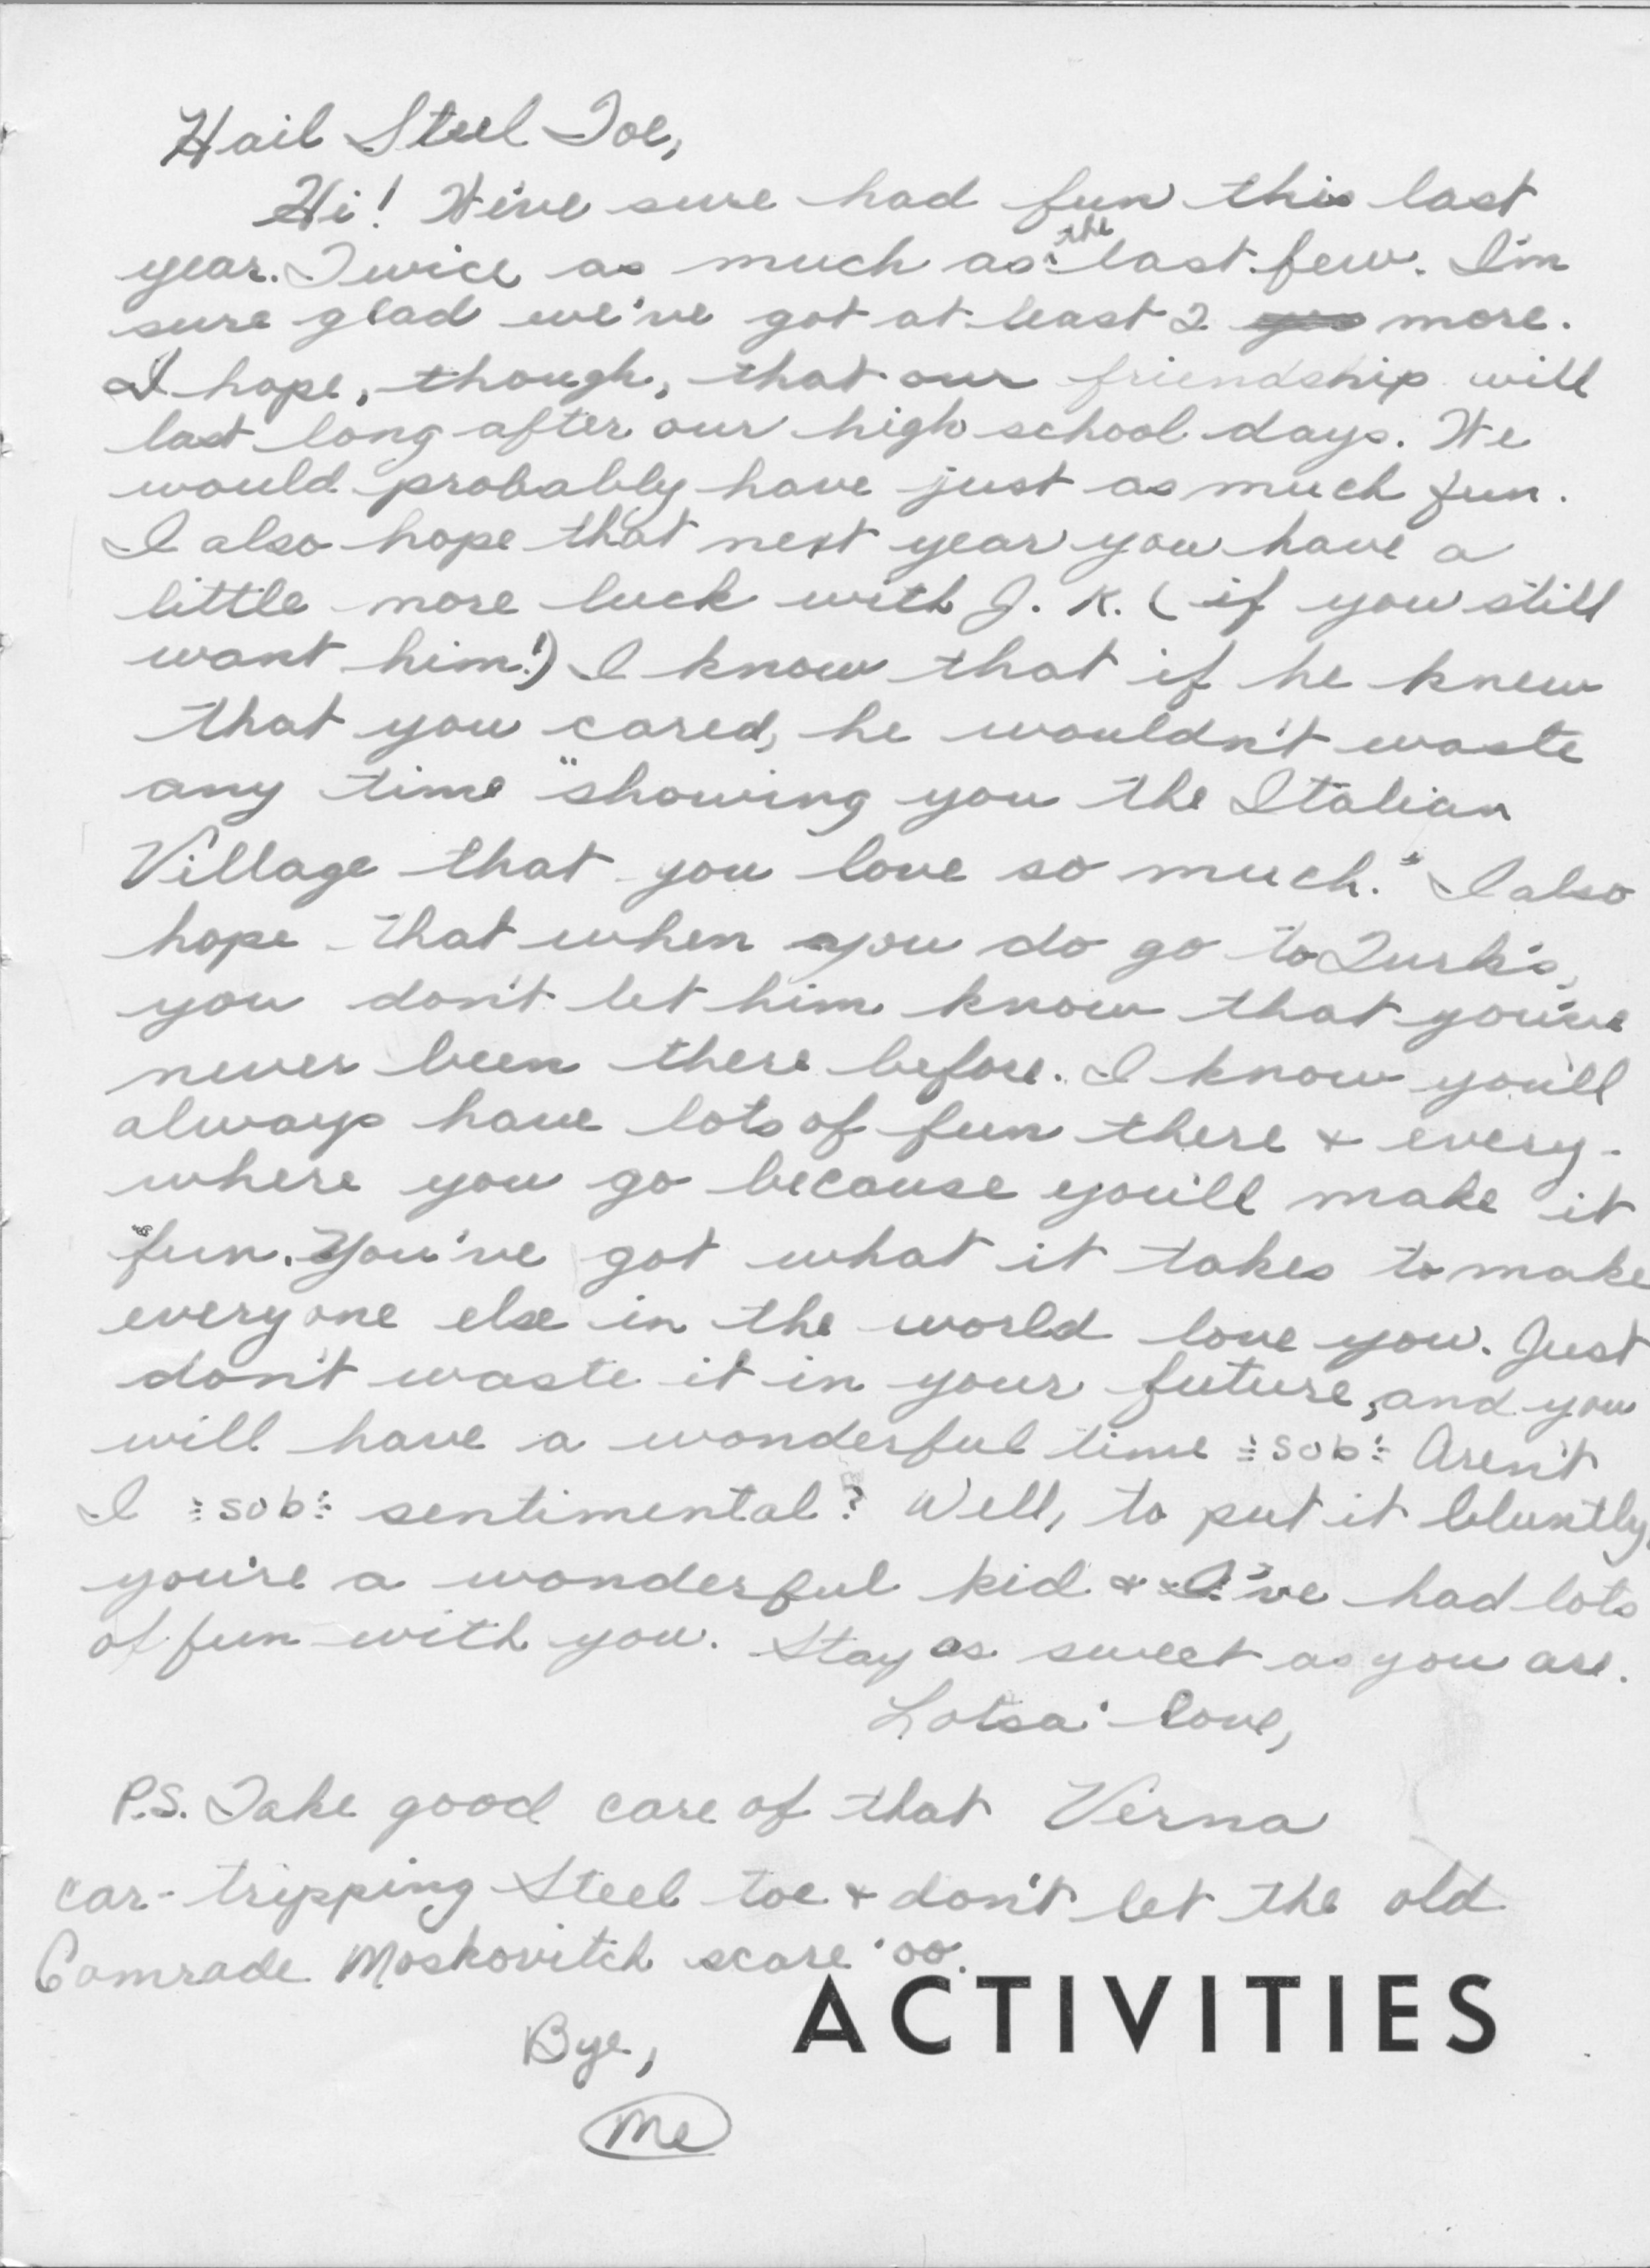 Hail Steel Toe,
Hi! We've sure had fun this last
year. Twice as much as the last few. I'm
sure glad we've got at least 2 more.
I hope, though, that our friendship will
last long after our high school days. We
would probably have just as much fun.
I also hope that next year you have a
little more luck with J. K. (if you still
want him!) I know that if he knew
that you cared, he wouldn't waste
any time "showing you the Italian
Village that you love so much." I also
hope that when you do go to Turk's,
you don't let him know that you've
never been there before. I know you'll
always have lots of fun there & every-
where you go because you'll make it
fun. You've got what it takes to make
everyone else in the world love you. Just
don't waste it in your future, and you
will have a wonderful time :sob: Aren't
I :sob: sentimental? Well, to put it bluntly,
you're a wonderful kid & I've had lots
of fun with you. Stay as sweet as you are.
Lotsa' love,
Verna
P.S. Take good care of that
car-tripping Steel toe & don't let the old
Comrade Moskovitch scare 'oo.
Bye,
Me
ACTIVITIES